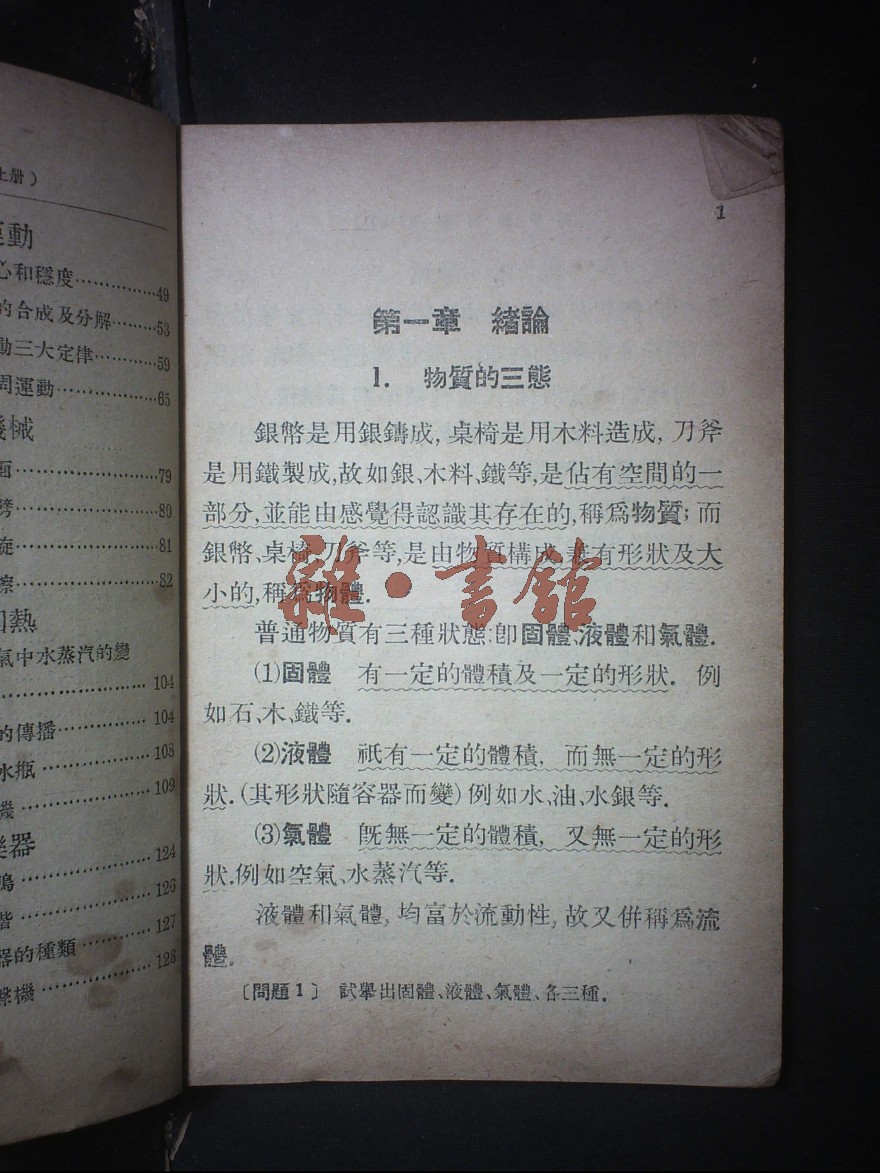 上册)
運動
心和穩度……………49
的合成及分解………53
動三大定律…………59
周運動………………65
機械
面……………………79
劈……………………80
旋……………………81
擦……………………82
和熱
氣中水蒸汽的變
…………………… 104
的傳播…………… 104
水瓶……………… 108
機………………… 109
樂器
鳴………………… 124
126
器的種類………… 127
128
1
第一章 緒論
1. 物質的三態
銀幣是用銀鑄成,桌椅是用木料造成,刀斧
是用鐵製成,故如銀、木料、鐵等,是佔有空間的一
部分,並能由感覺得認識其存在的,稱爲物質;而
銀幣、桌椅、刀斧等,是由物質構成,兼有形狀及大
小的,稱爲物體.
普通物質有三種狀態:卽固體、液體和氣體.
(1)固體 有一定的體積及一定的形狀. 例
如石、木、鐵等.
(2)液體 祇有一定的體積,而無一定的形
狀.(其形狀隨容器而變)例如水、油、水銀等.
(3)氣體 旣無一定的體積,又無一定的形
狀.例如空氣、水蒸汽等.
液體和氣體,均富於流動性,故又併稱爲流
體.
〔問題1〕 試舉出固體、液體、氣體、各三種.
雜·書館